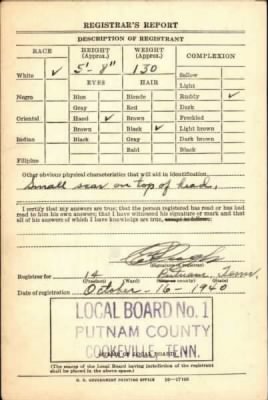 REGISTRAR'S REPORT
DESCRIPTION OF REGISTRANT
RACE HEIGHT (Approx.) WEIGHT (Approx.) COMPLEXION
White ✓ 5'-8" 130 Sallow
EYES HAIR Light
Negro Blue Blonde Ruddy ✓
Gray Red Dark
Oriental Hazel ✓ Brown Freckled
Brown Black ✓ Light brown
Indian Black Gray Dark brown
Bald Black
Filipino
Other obvious physical characteristics that will aid in identification
Small scar on top of head.
I certify that my answers are true; that the person registered has read or has had
read to him his own answers; that I have witnessed his signature or mark and that
all of his answers of which I have knowledge are true,
(Signature of registrar)
Registrar for 14 Putnam, Tenn.
(Precinct) (Ward) (City or county) (State)
Date of registration October -16 - 1940
LOCAL BOARD No. 1
PUTNAM COUNTY
COOKEVILLE, TENN.
(STAMP OF LOCAL BOARD)
(The stamp of the Local Board having jurisdiction of the registrant
shall be placed in the above space.)
U. S. GOVERNMENT PRINTING OFFICE 16—17105